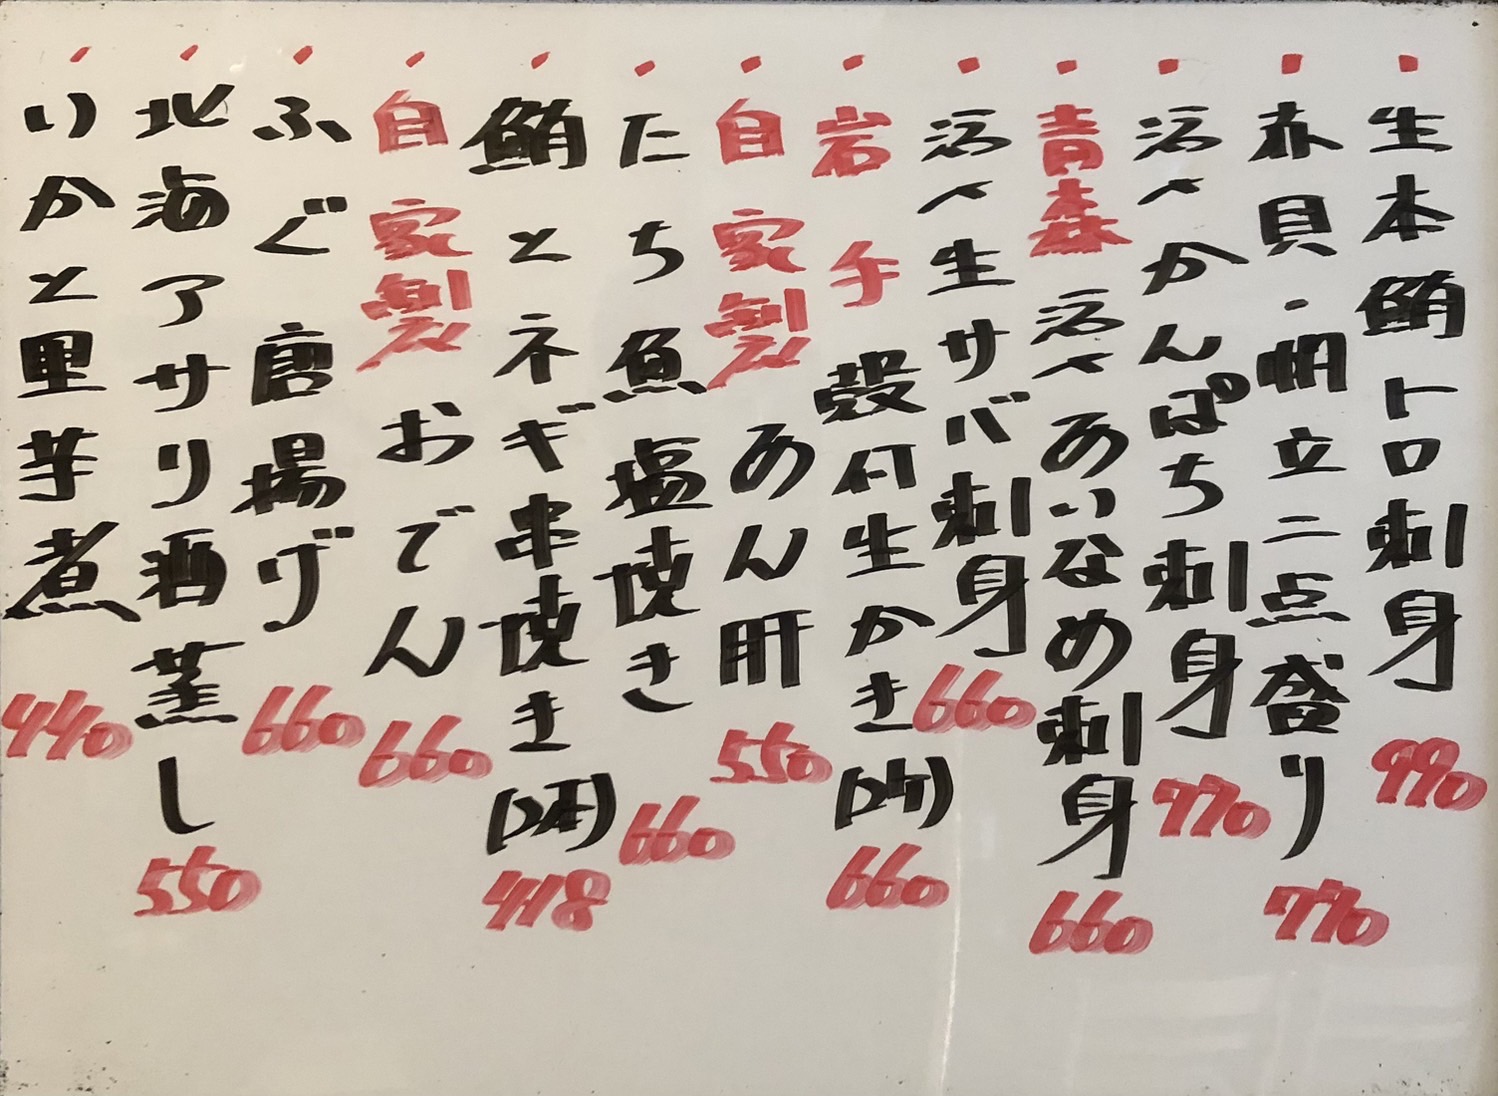 ・生本鮪トロ刺身 990
・赤貝・帆立二点盛り 770
・活〆かんぱち刺身 770
・青森 活〆あいなめ刺身 660
・活〆生サバ刺身 660
・岩手 殻付生かき(2ケ) 660
・自家製 あん肝 550
・たち魚塩焼き 660
・鮪とネギ串焼き(2本) 418
・自家製 おでん 660
・ふぐ唐揚げ 660
・北海アサリ酒蒸し 550
・いかと里芋煮 440